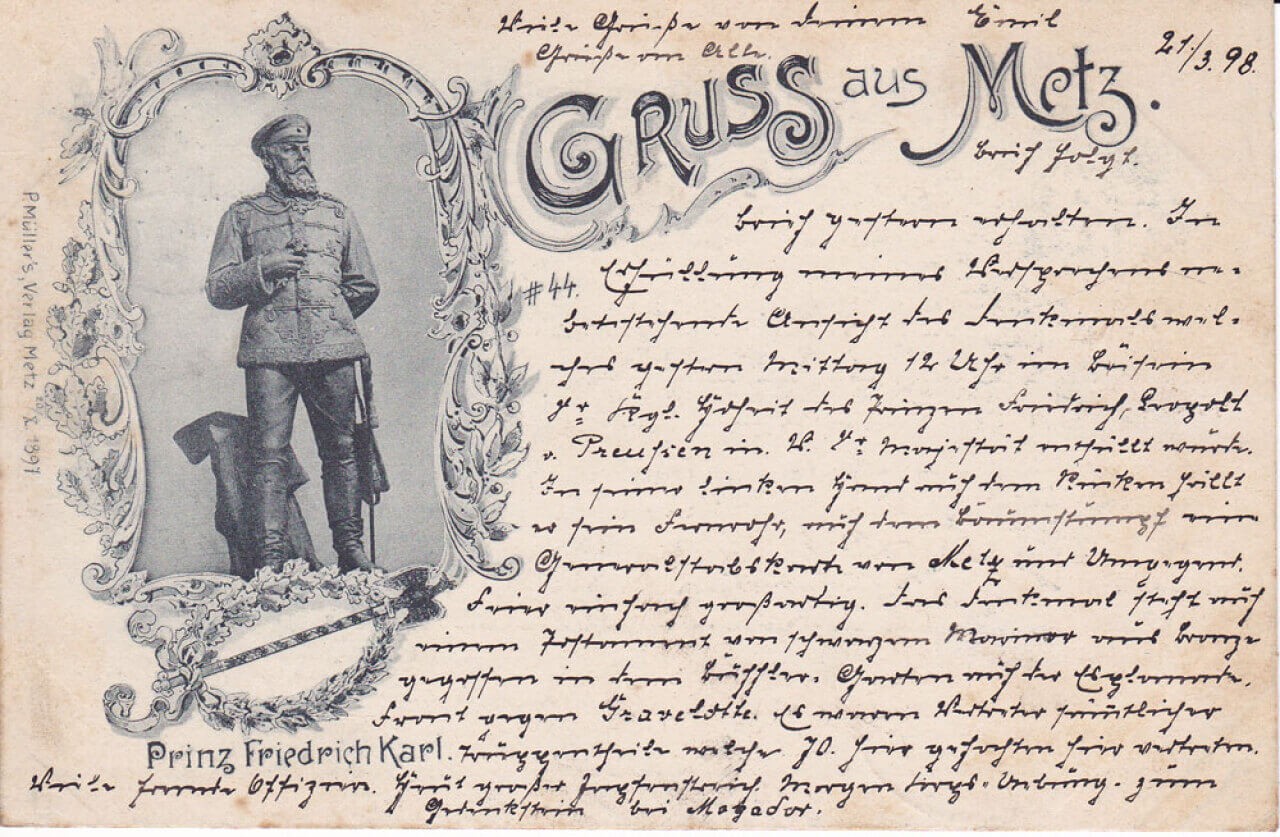 Viele Grüße von deinem Emil
Grüße an Alle.
21./3.98.
GRUSS aus Metz.
Brief folgt.
Brief gestern erhalten. In
#44.
Erfüllung meines Versprechens ne-
benstehende Ansicht des Denkmals wel-
ches gestern Mittag 12 Uhr im Beisein
Sr Kgl. Hoheit des Prinzen Friedrich, Leopolt
v. Preußen in. V. Sr Majestät enthüllt wurde.
In seiner linken Hand auf dem Rücken hällt
er sein Fernrohr, auf dem Baumstumpf eine
Generalstabskarte von Metz und Umgegend.
Feier einfach großartig. Das Denkmal steht auf
einem Postament von schwarzem Marmor aus Bronze
gegossen in dem Garten auf der Esplanade,
Front gegen Gravelotte. Es waren Vertreter sämtlicher
Prinz Friedrich Karl. Truppentheile welche 70. hier gefochten hier vertreten.
Viele fremde Offizire. Heut großer Zapfenstreich. Morgen Corps-Uebung. zum
Gedenkstein bei Mogador.
P. Müller's Verlag Metz 1897